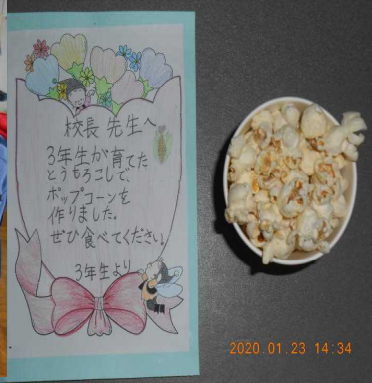 校長先生へ
3年生が育てた
とうもろこしで、
ポップコーンを
作りました。
ぜひ食べてください。
3年生より
2020.01.23 14:34